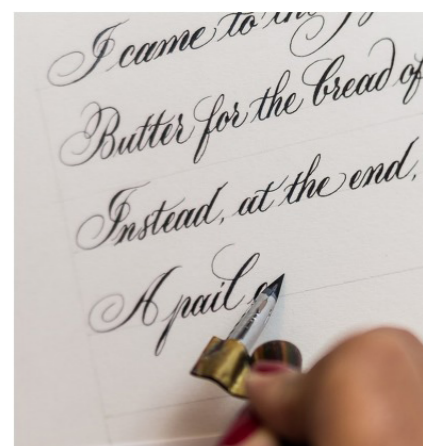 I came to the
Butter for the bread of
Instead, at the end,
A pail